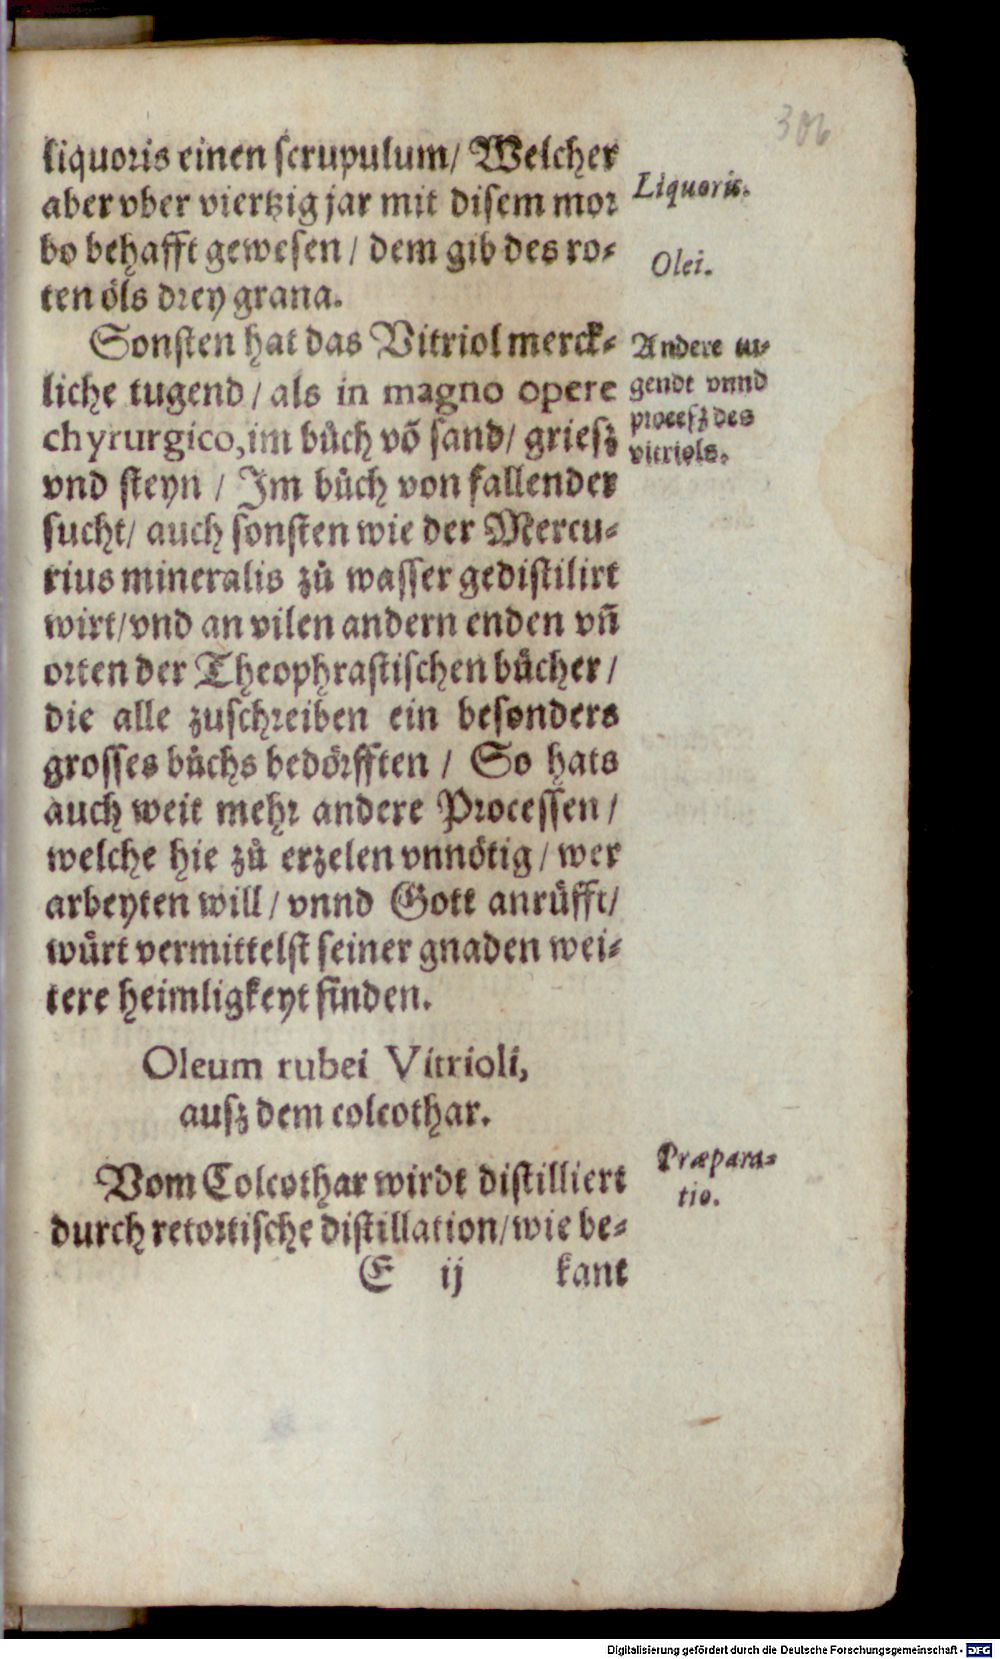 306
liquoris einen scrupulum/ Welcher
aber vber viertzig jar mit disem mor
bo behafft gewesen / dem gib des ro-
ten öls drey grana.
Liquoris.
Olei.
Sonsten hat das Vitriol merck-
liche tugend / als in magno opere
chyrurgico, im bůch võ sand/ griesz
vnd steyn / Im bůch von fallender
sucht/ auch sonsten wie der Mercu-
rius mineralis zů wasser gedistilirt
wirt/vnd an vilen andern enden vñ
orten der Theophrastischen bůcher /
die alle zuschreiben ein besonders
grosses bůchs bedörfften / So hats
auch weit mehr andere Processen /
welche hie zů erzelen vnnötig / wer
arbeyten will / vnnd Gott anrůfft/
würt vermittelst seiner gnaden wei-
tere heimligkeyt finden.
Andere tu-
gendt vnnd
procesz des
vitriols.
Oleum rubei Vitrioli,
ausz dem colcothar.
Vom Colcothar wirdt distilliert
durch retortische distillation/ wie be-
Præpara-
tio.
E ij kant
Digitalisierung gefördert durch die Deutsche Forschungsgemeinschaft - DFG